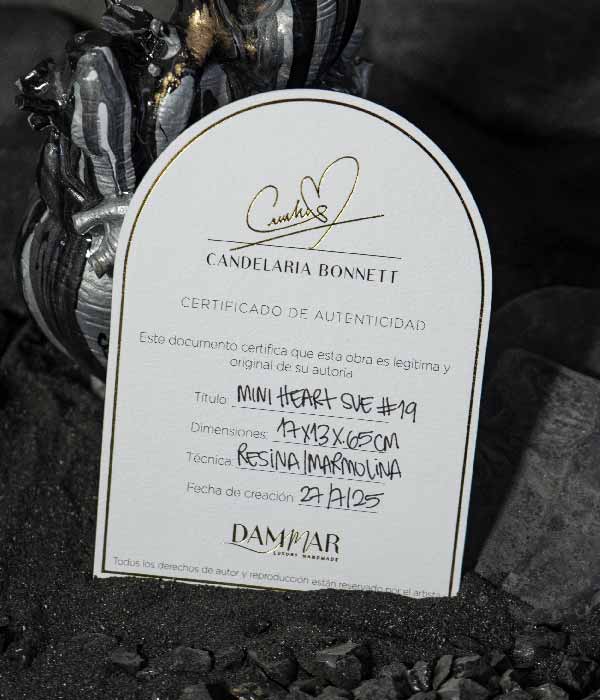 CANDELARIA BONNETT
CERTIFICADO DE AUTENTICIDAD
Este documento certifica que esta obra es legítima y
original de su autoría
Título: MINI HEART SVE #19
Dimensiones: 17X13X65CM
Técnica: RESINA/MARMOLINA
Fecha de creación: 27/7/25
DAMMAR
LUXURY HANDMADE
Todos los derechos de autor y reproducción están reservado por el artista